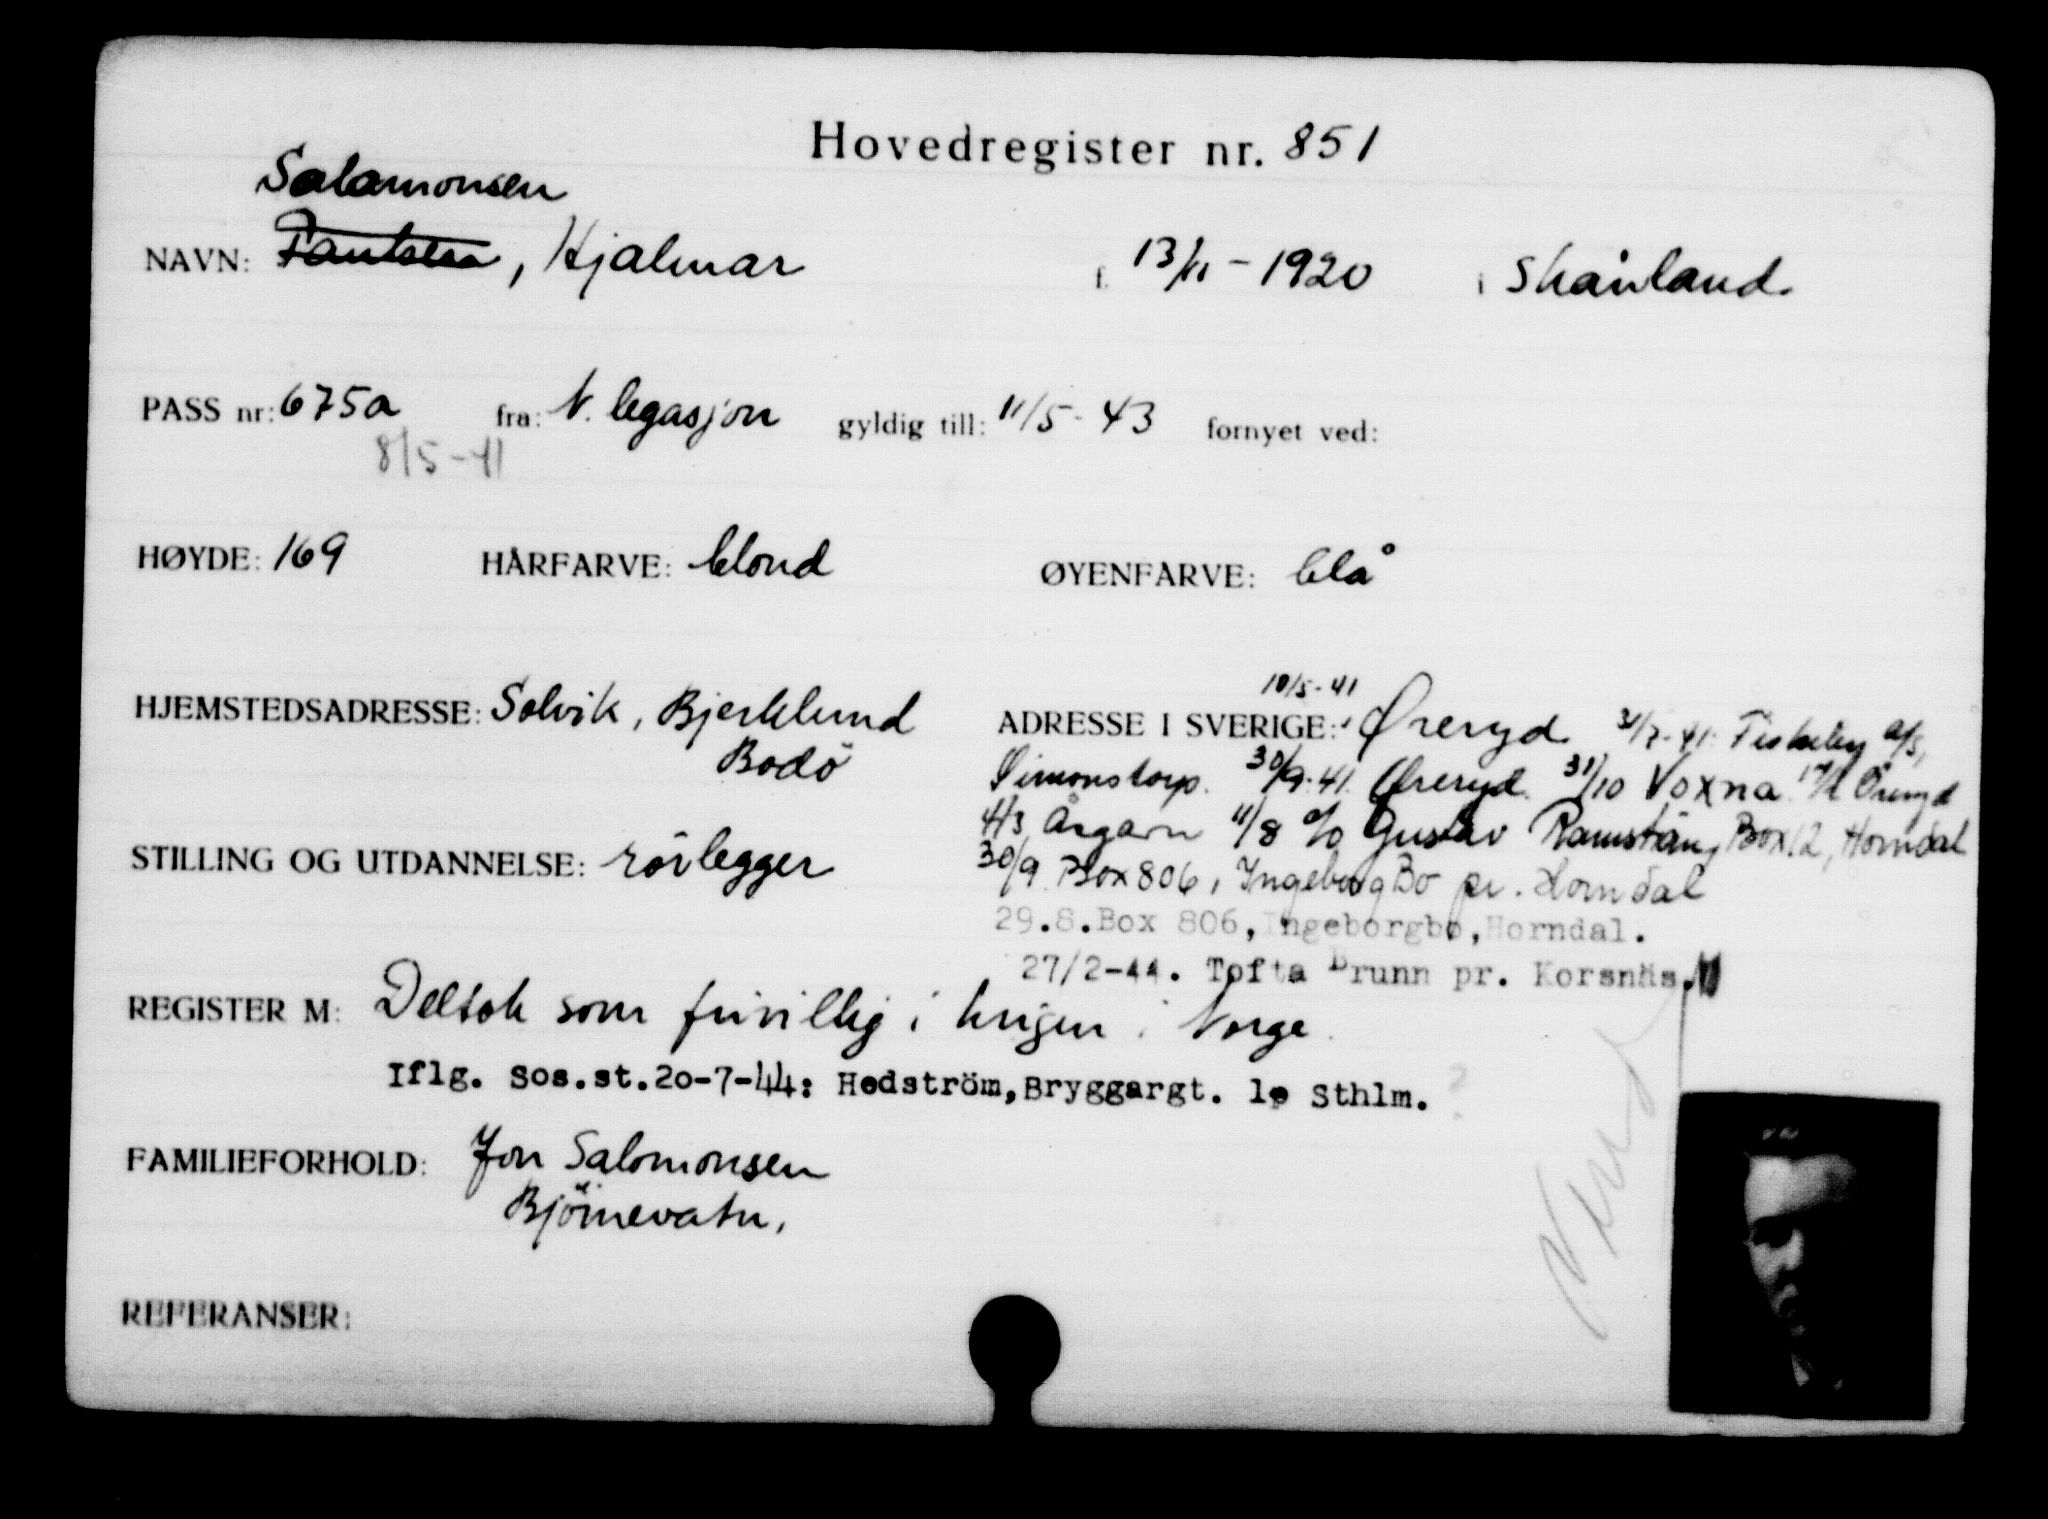 Hovedregister nr. 851
Salamonsen
NAVN: Paulsen, Hjalmar f. 13/11-1920 i Skånland.
PASS nr: 675a fra: N. legasjon gyldig till: 11/5-43 fornyet ved:
8/5-41
HØYDE: 169 HÅRFARVE: blond ØYENFARVE: blå
10/5-41
HJEMSTEDSADRESSE: Solvik, Bjerklund ADRESSE I SVERIGE: Øreryd. 31/7-41. Fiskeby A/S,
Bodö Simonstorp. 30/9-41. Øreryd. 31/10 Voxna. Öreryd
4/3 Årgarn 11/8 c/o Gustav Box 12, Horndal
STILLING OG UTDANNELSE: rörlegger 30/9. Box 806, IngeborgBo pr. Horndal
29.8.Box 806, Ingeborgbo, Horndal.
27/2-44. Tofta Brunn pr. Korsnäs.
REGISTER M: Deltok som frivillig i krigen i Norge.
Iflg. Sos.st.20-7-44: Hedström, Bryggargt. Sthlm. ?
FAMILIEFORHOLD: Jon Salomonsen
Björnevatn,
REFERANSER: